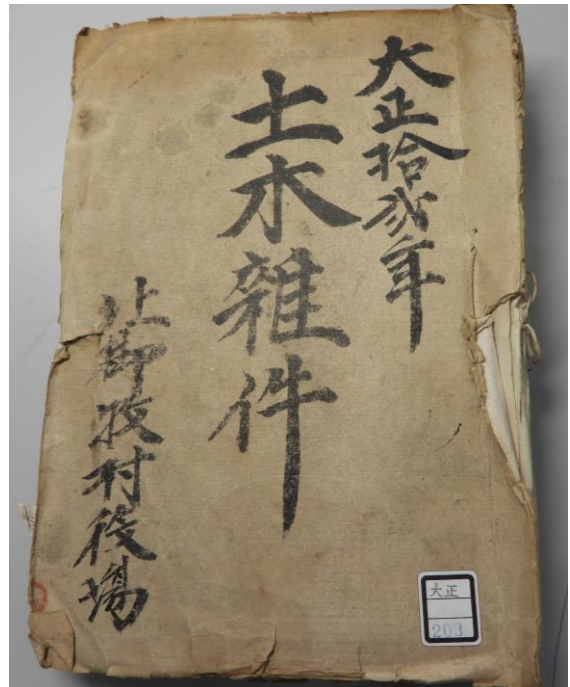 大正拾弐年
土木雜件
北御牧村役場
大正
203